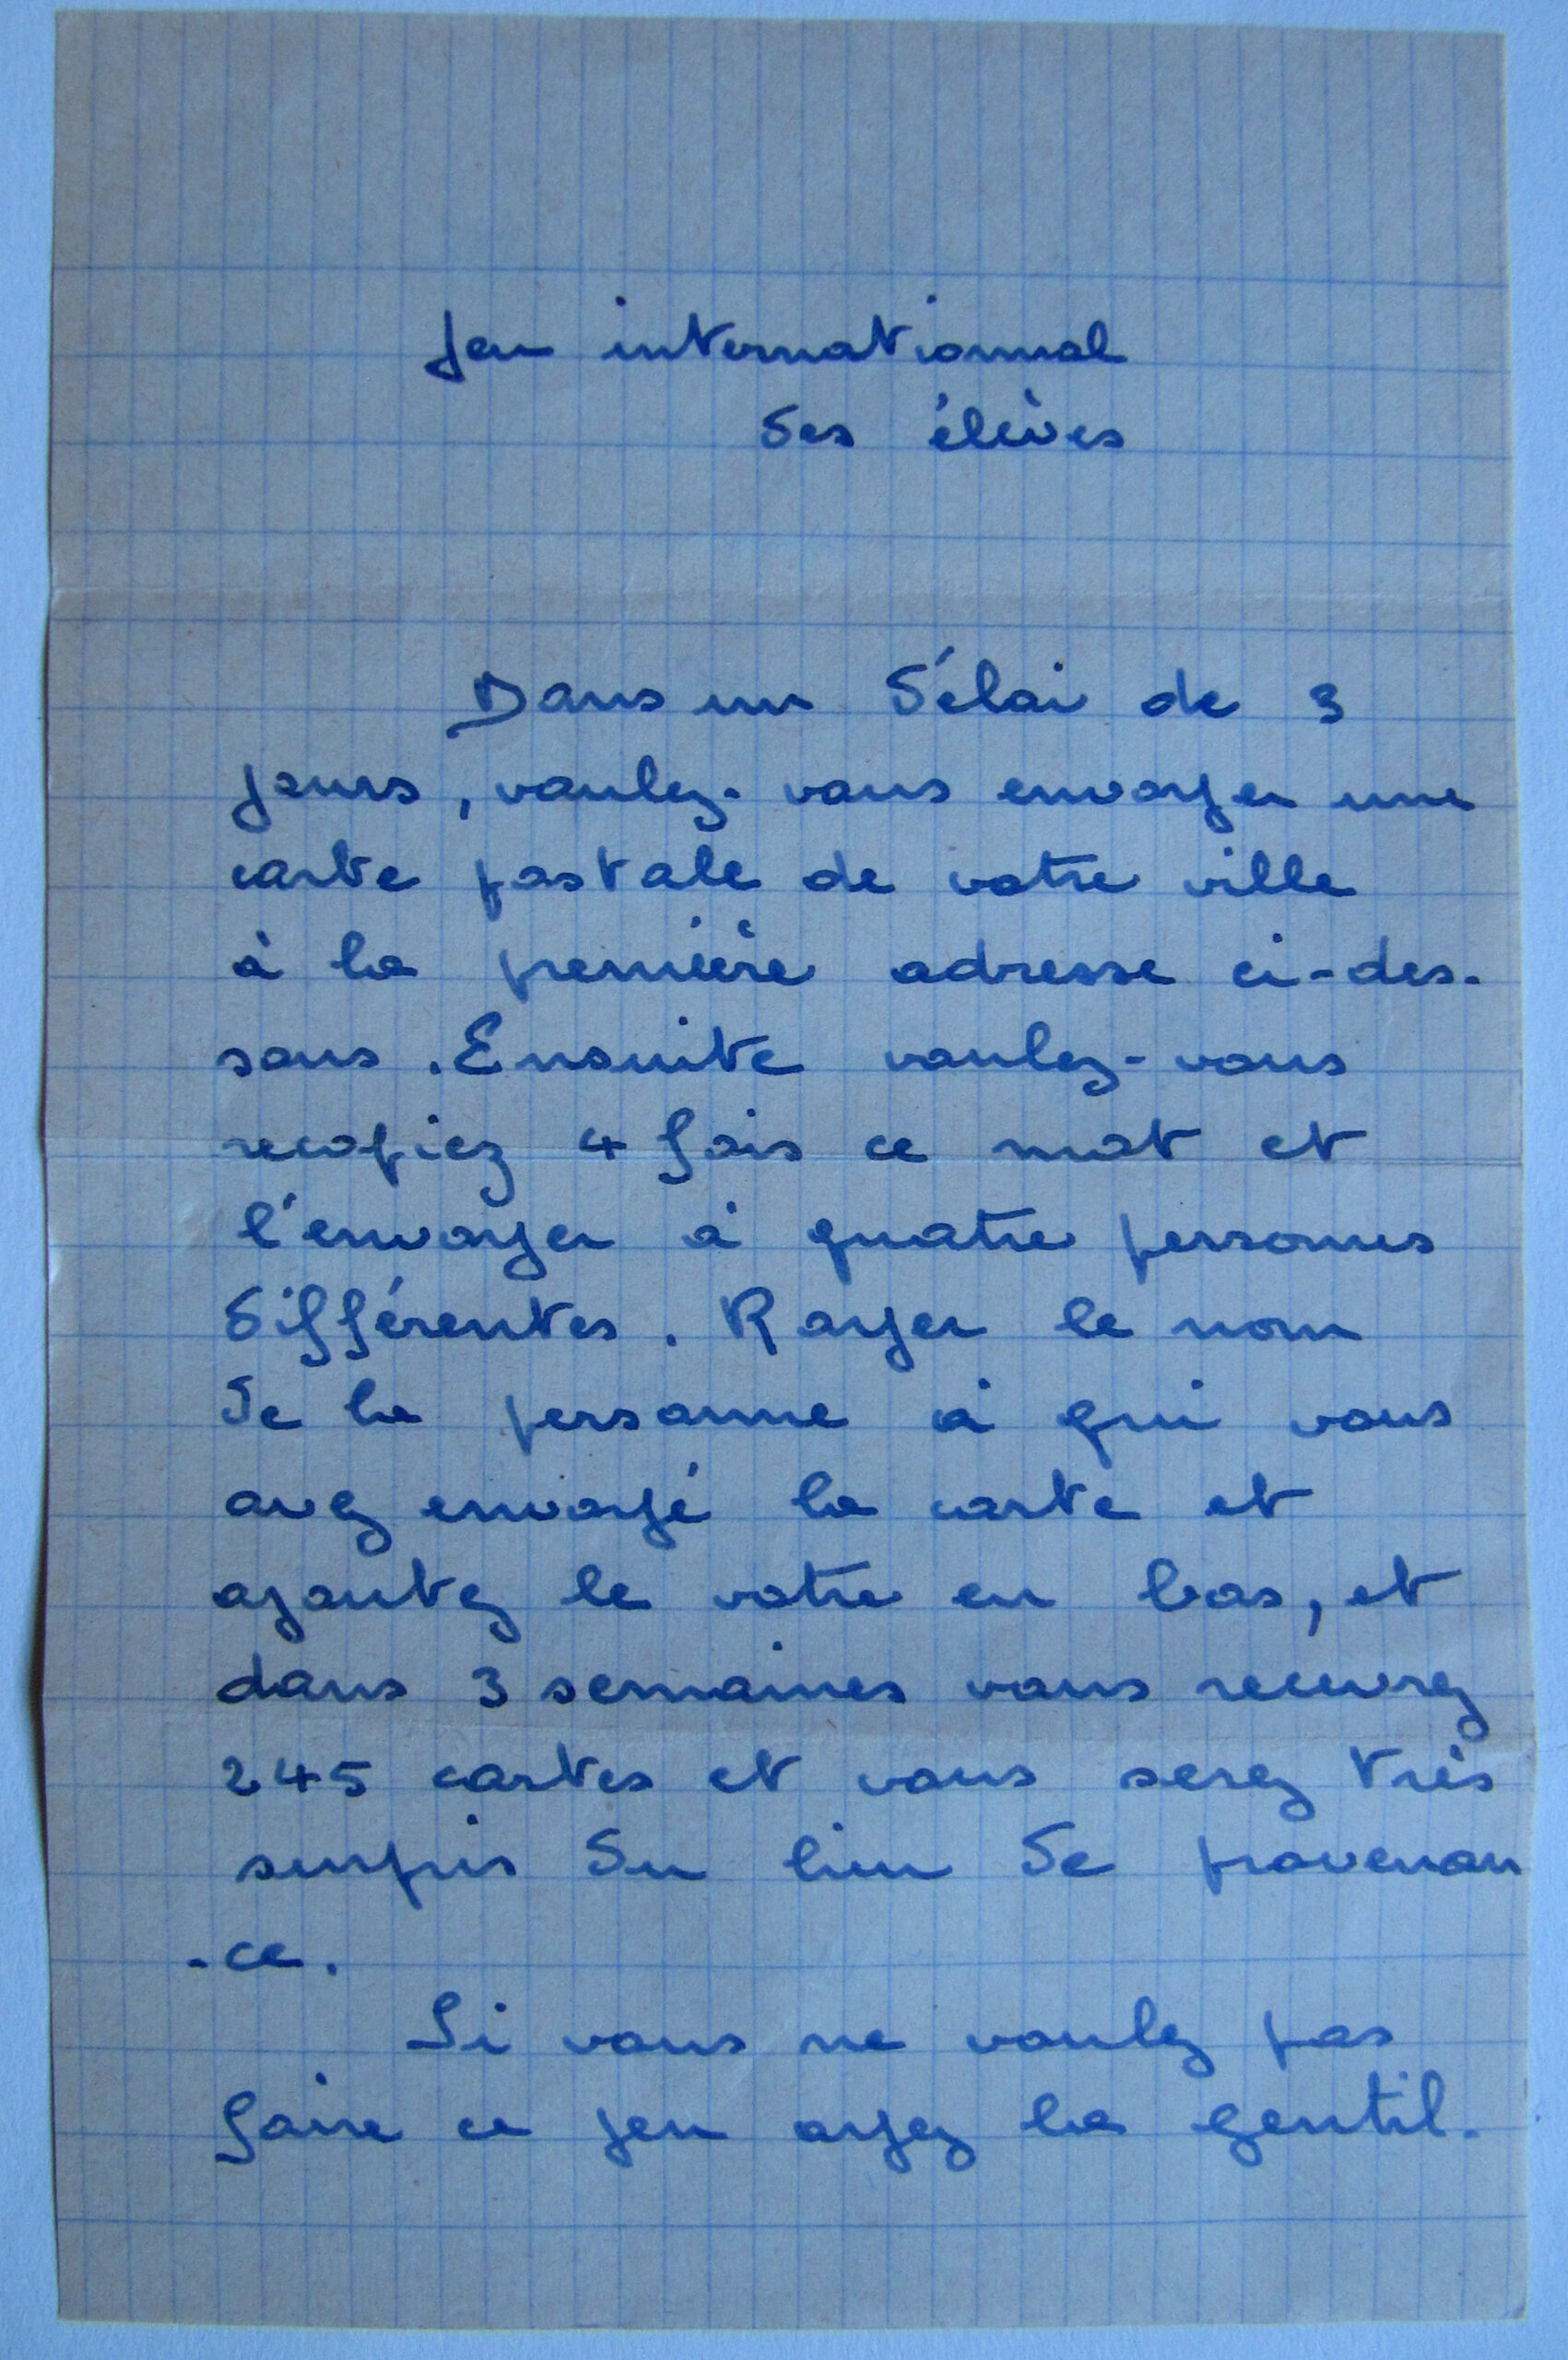 Jeu internationnal
des élèves
Dans un délai de 3
jours, voulez-vous envoyer une
carte postale de votre ville
à la première adresse ci-des-
sous. Ensuite voulez-vous
recopiez 4 fois ce mot et
l'envoyer à quatre personnes
différentes. Rayer le nom
de la personne à qui vous
avez envoyé la carte et
ajoutez le votre en bas, et
dans 3 semaines vous recevrez
245 cartes et vous serez très
surpris du lieu de provenan
-ce.
Si vous ne voulez pas
faire ce jeu ayez la gentil-